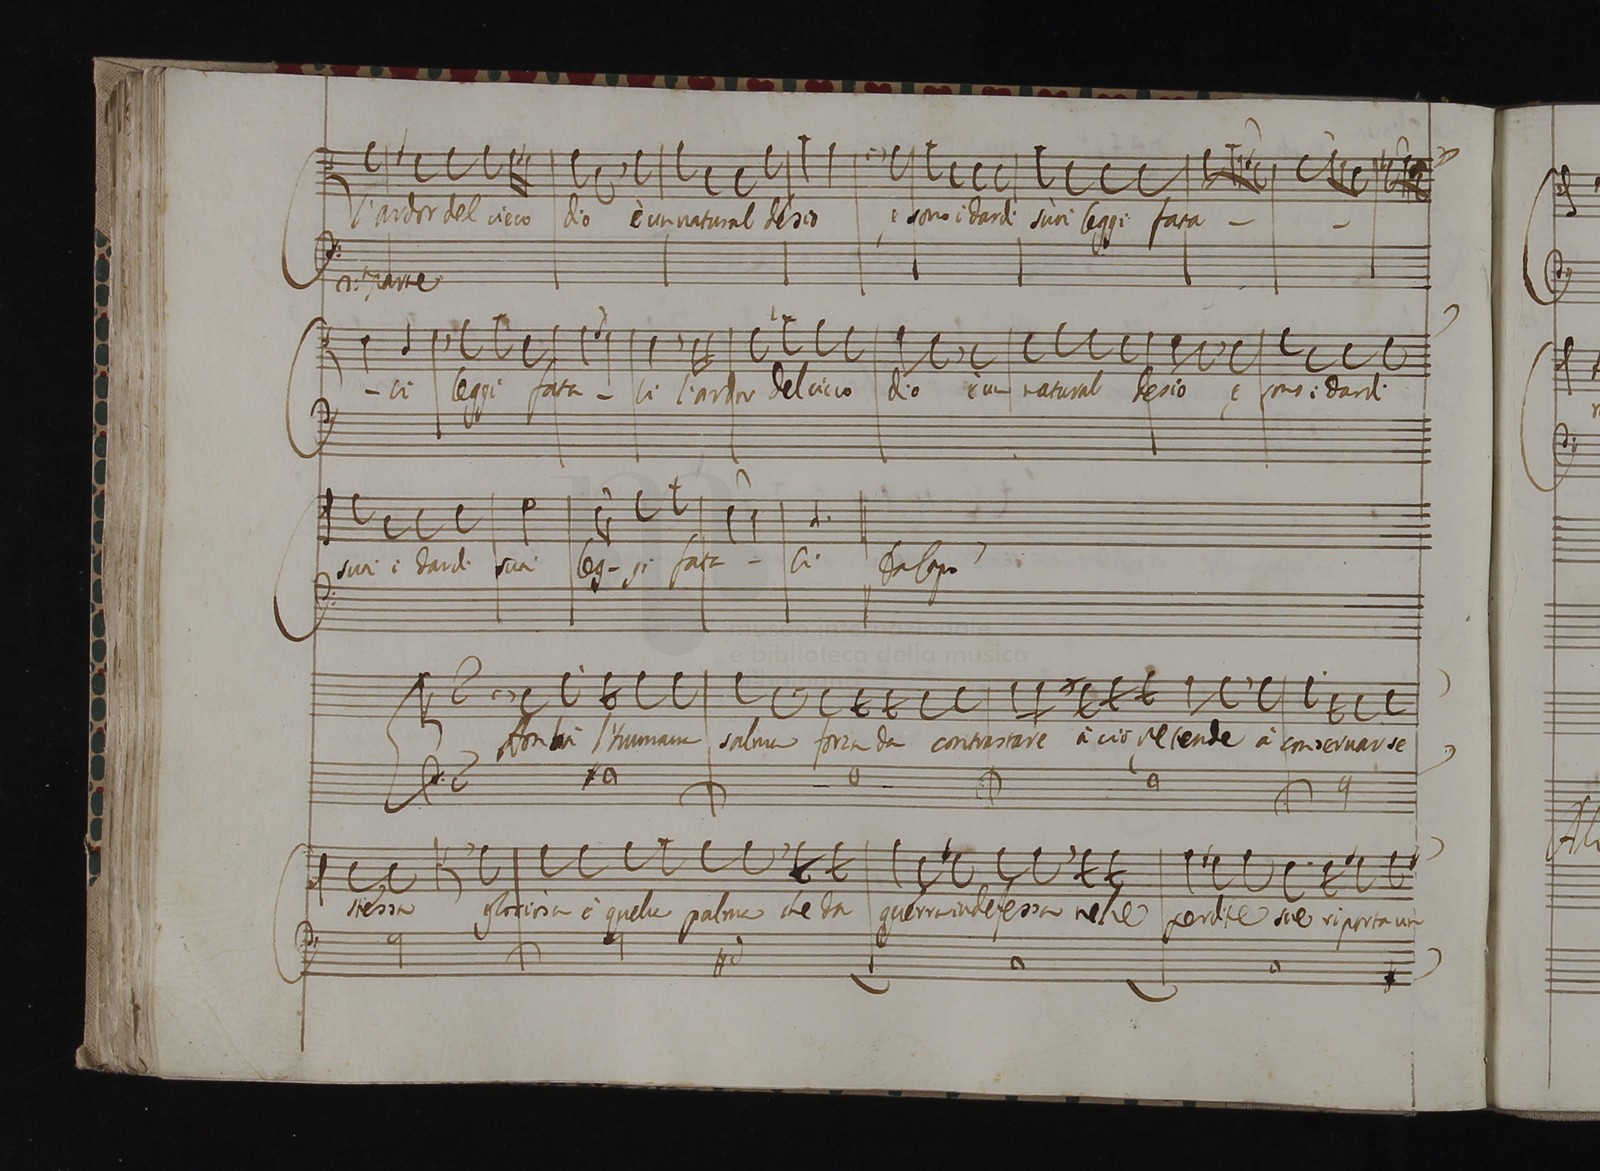 l'ardor del cieco dio è un natural desio e sono i dardi suoi leggi fata - -
2.ª parte
- li leggi fata - li l'ardor del cieco dio è un natural desio e sono i dardi
suoi i dardi suoi leg - gi fata - li Da Capo
Non hà l'humana salma forza da contrastare à ciò che tende à conservar se
stessa gloriosa è quella palma che da guerra indefessa nelle perdite sue riporta un
museo internazionale
e biblioteca della musica